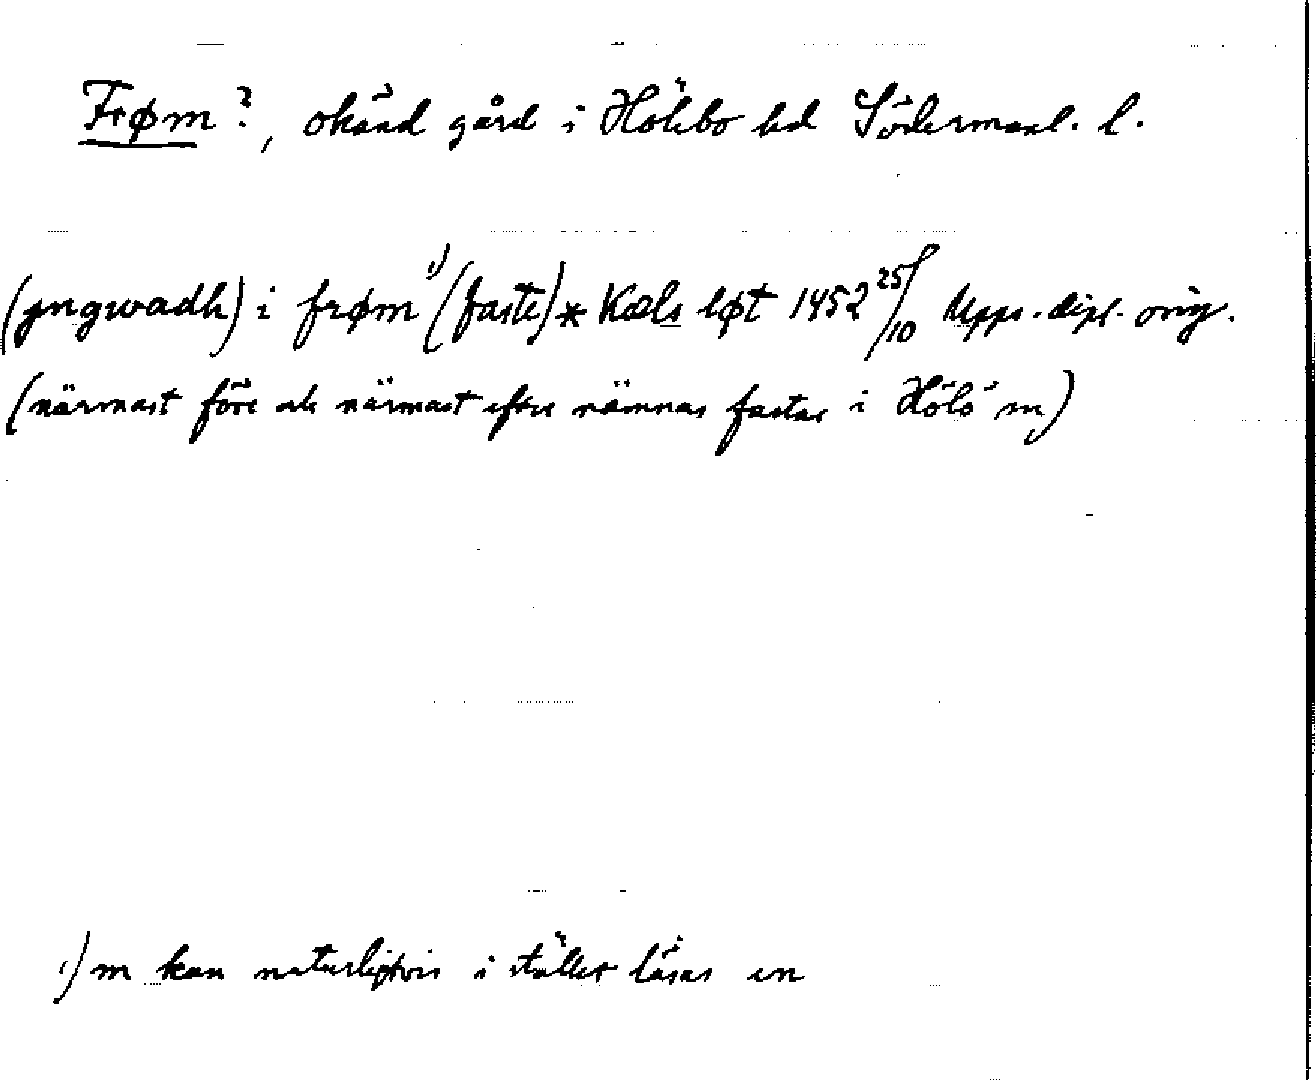 Frøm?, okänd gård i Hölebo hd Södermanl. l.
(yngwadh) i frøm ¹) (faste) * Kæls løt 1452 25/10 Upps. dipl. orig.
(närmast före ock närmast efter nämnas fastar i Hölö sn)
¹) m kan naturligtvis i stället läsas in